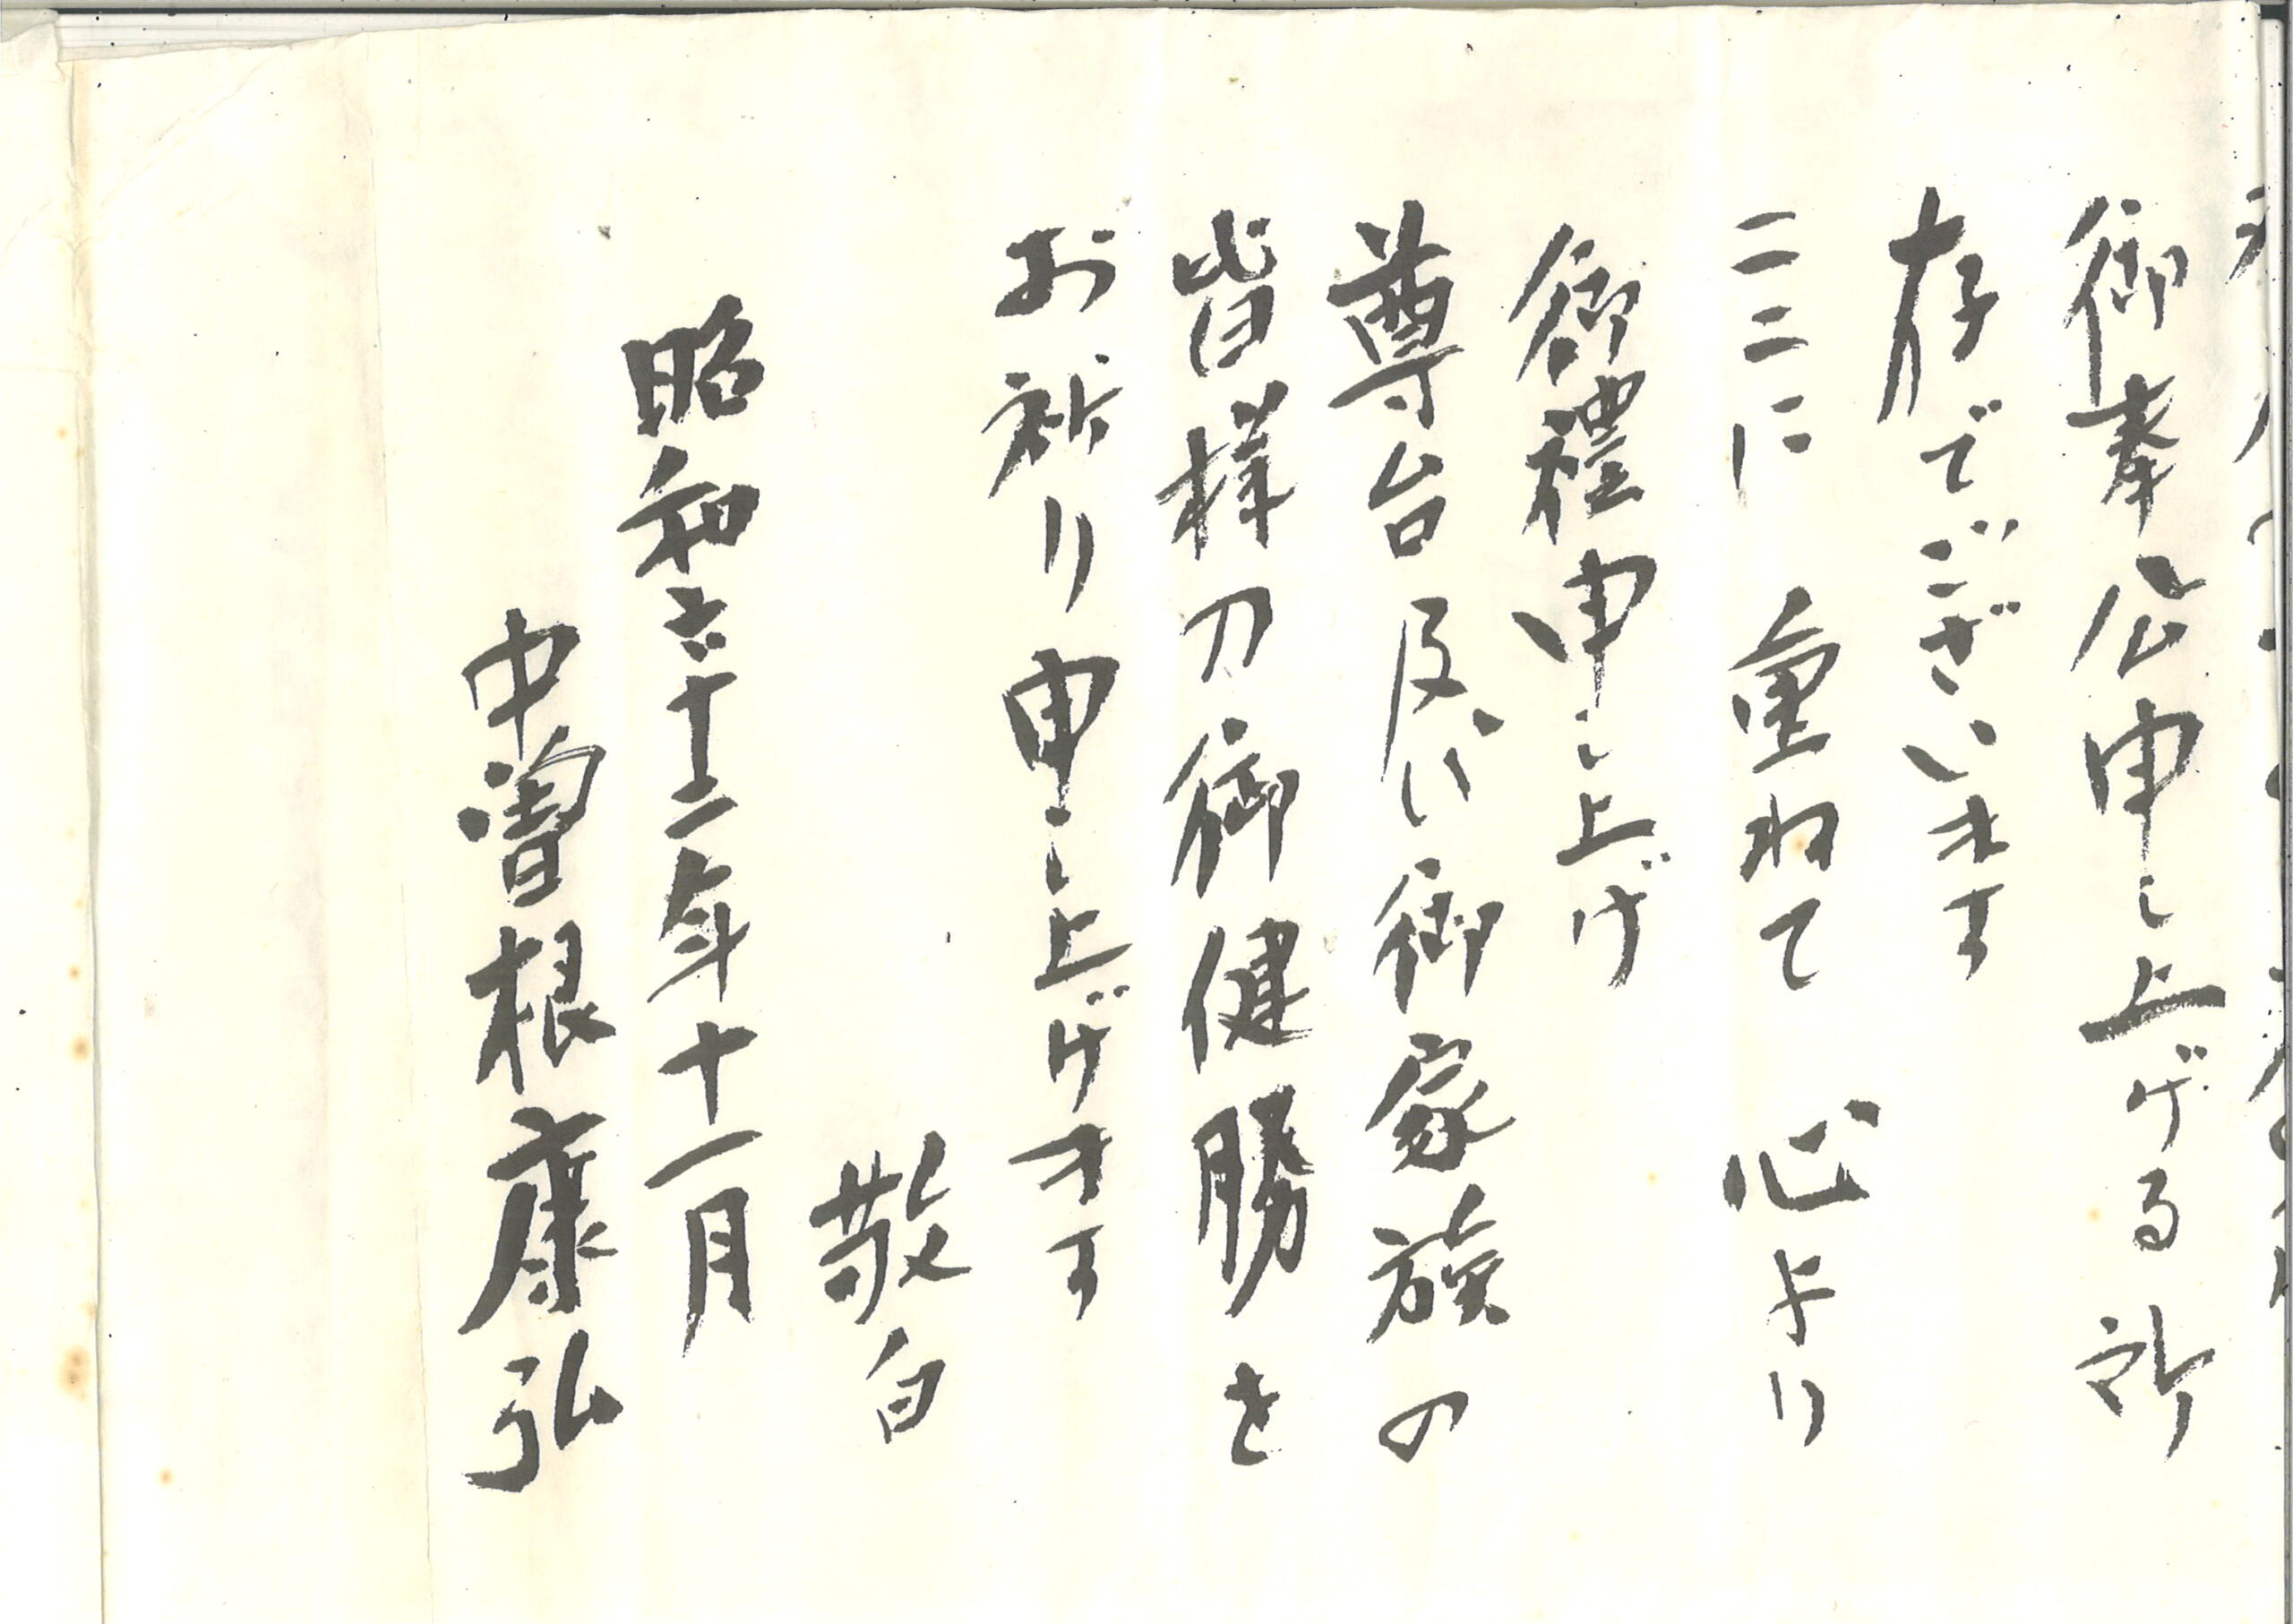 御奉公申し上げる所
存でございます
ここに 重ねて 心より
御禮申し上げ
尊台及び御家族の
皆様の御健勝を
お祈り申し上げます
敬白
昭和六十二年十一月
中曽根康弘